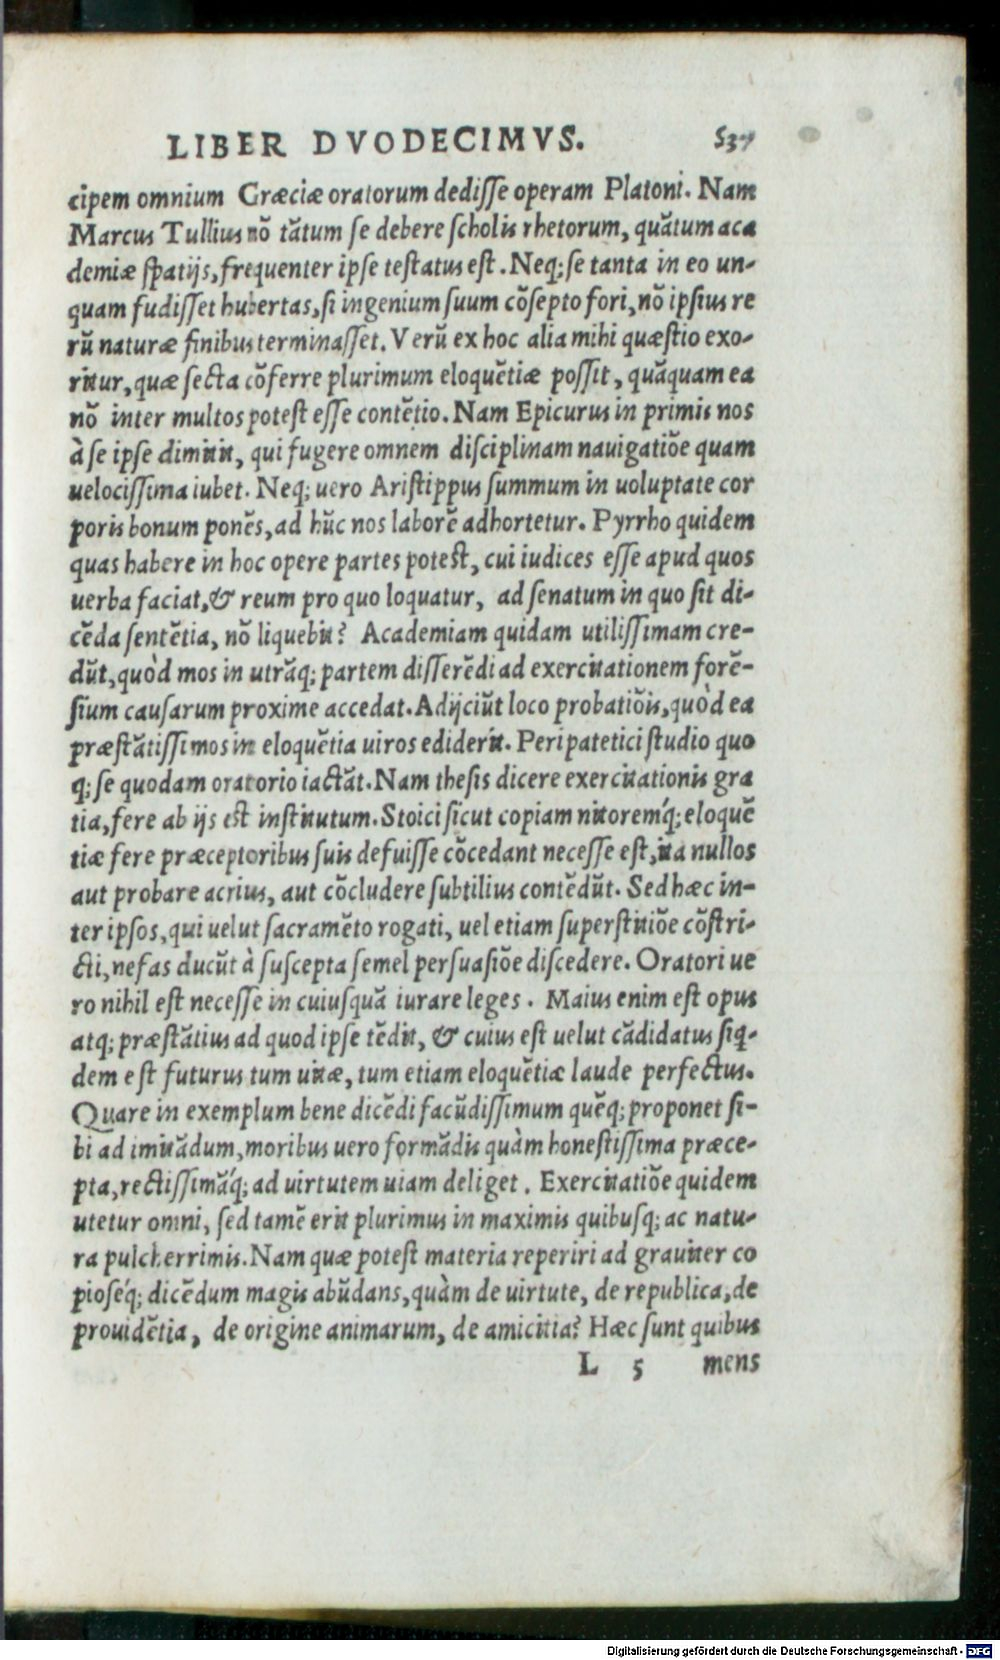 LIBER DVODECIMVS. 537
cipem omnium Græciæ oratorum dediſſe operam Platoni. Nam
Marcus Tullius nõ tãtum ſe debere ſcholis rhetorum, quãtum aca
demiæ ſpatijs, frequenter ipſe teſtatus eſt. Neq; ſe tanta in eo un-
quam fudiſſet hubertas, ſi ingenium ſuum cõſepto fori, nõ ipſius re
rũ naturæ finibus terminaſſet. Verũ ex hoc alia mihi quæſtio exo-
ritur, quæ ſecta cõferre plurimum eloquẽtiæ poſſit, quãquam ea
nõ inter multos poteſt eſſe contẽtio. Nam Epicurus in primis nos
à ſe ipſe dimittit, qui fugere omnem diſciplinam nauigatiõe quam
uelociſſima iubet. Neq; uero Ariſtippus ſummum in uoluptate cor
poris bonum ponẽs, ad hũc nos laborẽ adhortetur. Pyrrho quidem
quas habere in hoc opere partes poteſt, cui iudices eſſe apud quos
uerba faciat, & reum pro quo loquatur, ad ſenatum in quo ſit di-
cẽda ſentẽtia, nõ liquebit? Academiam quidam utiliſſimam cre-
dũt, quòd mos in utrãq; partem diſſerẽdi ad exercitationem forẽ-
ſium cauſarum proxime accedat. Adijciũt loco probatiõis, quòd ea
præſtãtiſſimos in eloquẽtia uiros ediderit. Peripatetici ſtudio quo
q; ſe quodam oratorio iactãt. Nam theſis dicere exercitationis gra
tia, fere ab ijs eſt inſtitutum. Stoici ſicut copiam nitoremq́; eloquẽ
tiæ fere præceptoribus ſuis defuiſſe cõcedant neceſſe eſt, ita nullos
aut probare acrius, aut cõcludere ſubtilius contẽdũt. Sed hæc in-
ter ipſos, qui uelut ſacramẽto rogati, uel etiam ſuperſtitiõe cõſtri-
cti, nefas ducũt à ſuſcepta ſemel perſuaſiõe diſcedere. Oratori ue
ro nihil eſt neceſſe in cuiuſquã iurare leges. Maius enim eſt opus
atq; præſtãtius ad quod ipſe tẽdit, & cuius eſt uelut cãdidatus ſiq-
dem eſt futurus tum uitæ, tum etiam eloquẽtiæ laude perfectus.
Quare in exemplum bene dicẽdi facũdiſſimum quẽq; proponet ſi-
bi ad imitãdum, moribus uero formãdis quàm honeſtiſſima præce-
pta, rectiſſimãq́; ad uirtutem uiam deliget. Exercitatiõe quidem
utetur omni, ſed tamẽ erit plurimus in maximis quibuſq; ac natu-
ra pulcherrimis. Nam quæ poteſt materia reperiri ad grauiter co
pioſéq́; dicẽdum magis abũdans, quàm de uirtute, de republica, de
prouidẽtia, de origine animarum, de amicitia? Hæc ſunt quibus
L 5 mens
Digitalisierung gefördert durch die Deutsche Forschungsgemeinschaft - DFG